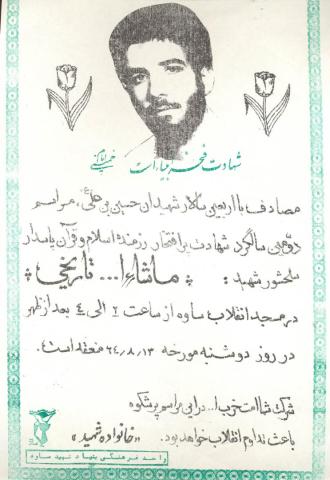 شهادت فخر انبیاء است
مصادف با اربعین سالار شهیدان حسین بن علی (ع)، مراسم
دومین سالگرد شهادت پرافتخار رزمنده اسلام و قرآن پاسدار
سلحشور شهید: ماشاءا... تاریخی
در مسجد انقلاب ساوه از ساعت ۲ الی ٤ بعد از ظهر
در روز دوشنبه مورخه ٦٤٫۸٫۱۳ منعقد است.
شرکت شما امت حزب ا... در این مراسم پرشکوه
باعث تداوم انقلاب خواهد بود. «خانواده شهید»
واحد فرهنگی بنیاد شهید ساوه